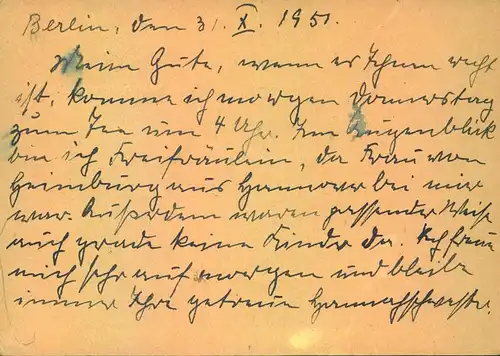 Berlin, den 31. X. 1951.
Meine Gute, wenn es Ihnen recht
ist, komme ich morgen Donnerstag
zum Tee um 4 Uhr. Im Augenblick
bin ich Freifräulein, da Frau von
Heimburg aus Hannover bei mir
war. Außerdem waren passender Weise
auch grade keine Kinder da. Ich freue
mich sehr auf morgen und bleibe
immer Ihre getreue